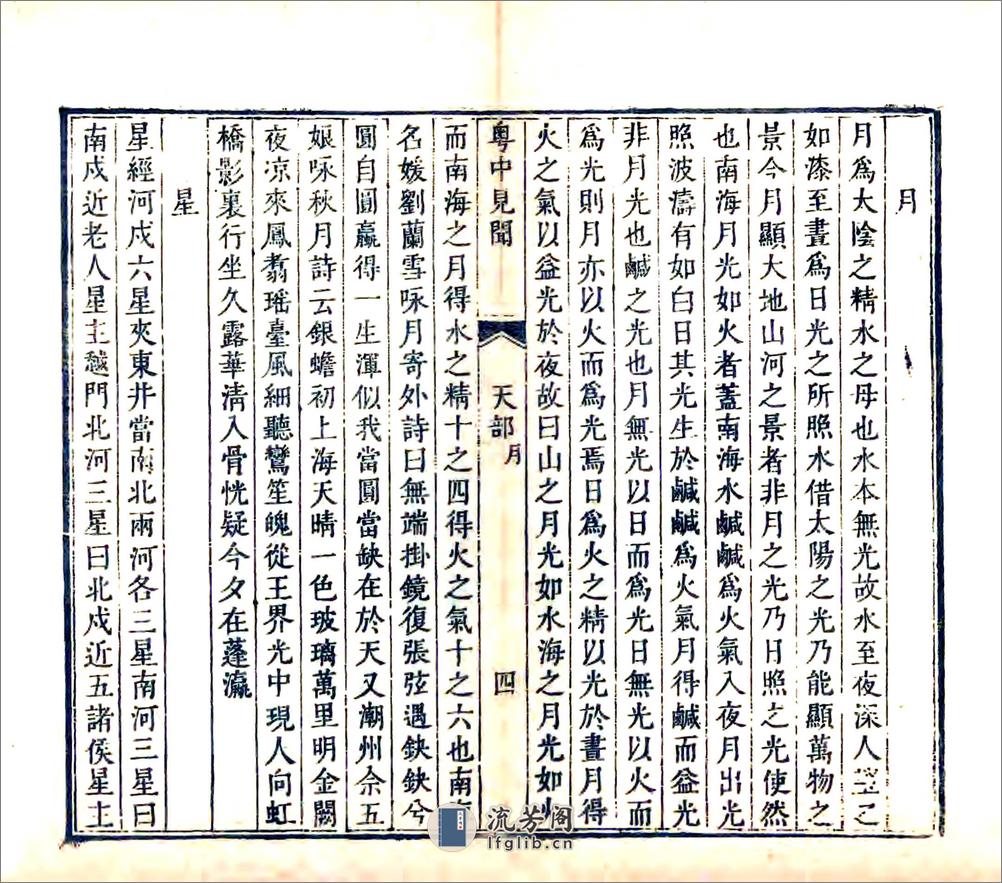 月
月爲太陰之精水之母也水本無光故水至夜深人
如漆至晝爲日光之所照水借太陽之光乃能顯萬物之
景今月顯大地山河之景者非月之光乃日照之光使然
也南海月光如火者蓋南海水鹹鹹爲火氣入夜月出光
照波濤有如白日其光生於鹹鹹爲火氣月得鹹而益光
非月光也鹹之光也月無光以日而爲光日無光以火而
爲光則月亦以火而爲光焉日爲火之精以光於晝月得
火之氣以益光於夜故曰山之月光如水海之月光如
粤中見聞 天部 月 四
而南海之月得水之精十之四得火之氣十之六也南
名媛劉蘭雪咏月寄外詩曰無端掛鏡復張弦遇鈌鈌兮
圓自圓贏得一生渾似我當圓當缺在於天又潮州佘五
娘咏秋月詩云銀蟾初上海天晴一色玻璃萬里明金闕
夜凉來鳳翥瑶臺風細聽鸞笙魄從王界光中現人向虹
橋影裏行坐久露華清入骨恍疑今夕在蓬瀛
星
星經河戍六星夾東井當南北兩河各三星南河三星曰
南戍近老人星主越門北河三星曰北戍近五諸侯星主
流芳阁
lfglib.cn